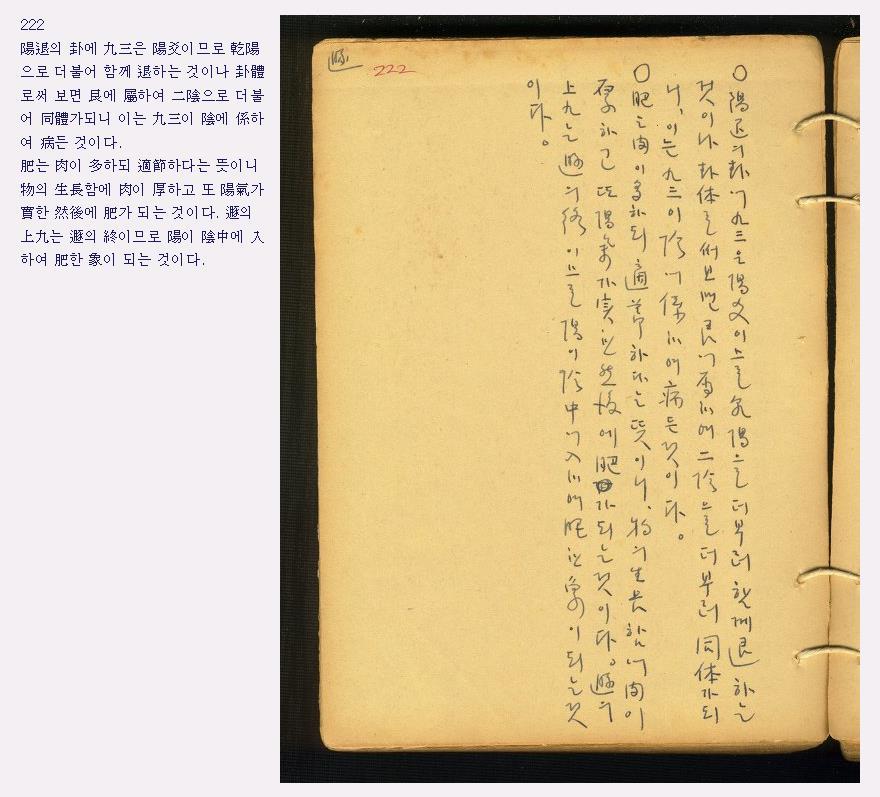 222
陽退의 卦에 九三은 陽爻이므로 乾陽
으로 더불어 함께 退하는 것이나 卦體
로써 보면 艮에 屬하여 二陰으로 더불
어 同體가되니 이는 九三이 陰에 係하
여 病든 것이다.
肥는 肉이 多하되 適節하다는 뜻이니
物의 生長함에 肉이 厚하고 또 陽氣가
實한 然後에 肥가 되는 것이다. 遯의
上九는 遯의 終이므로 陽이 陰中에 入
하여 肥한 象이 되는 것이다.
遯
222
○ 陽退의 卦에 九三은 陽爻이므로 乾陽으로 더부러 함께 退하는
것이나 卦体로써 보면 艮에 屬하여 二陰으로 더부러 同体가되
니, 이는 九三이 陰에 係하여 病든것이다。
○ 肥는 肉이 多하되 適節하다는 뜻이니, 物의 生長함에 肉이
厚하고 또 陽氣가 実한 然後에 肥가 되는것이다。 遯의
上九는 遯의 終이므로 陽이 陰中에 入하여 肥한 象이 되는것
이다。